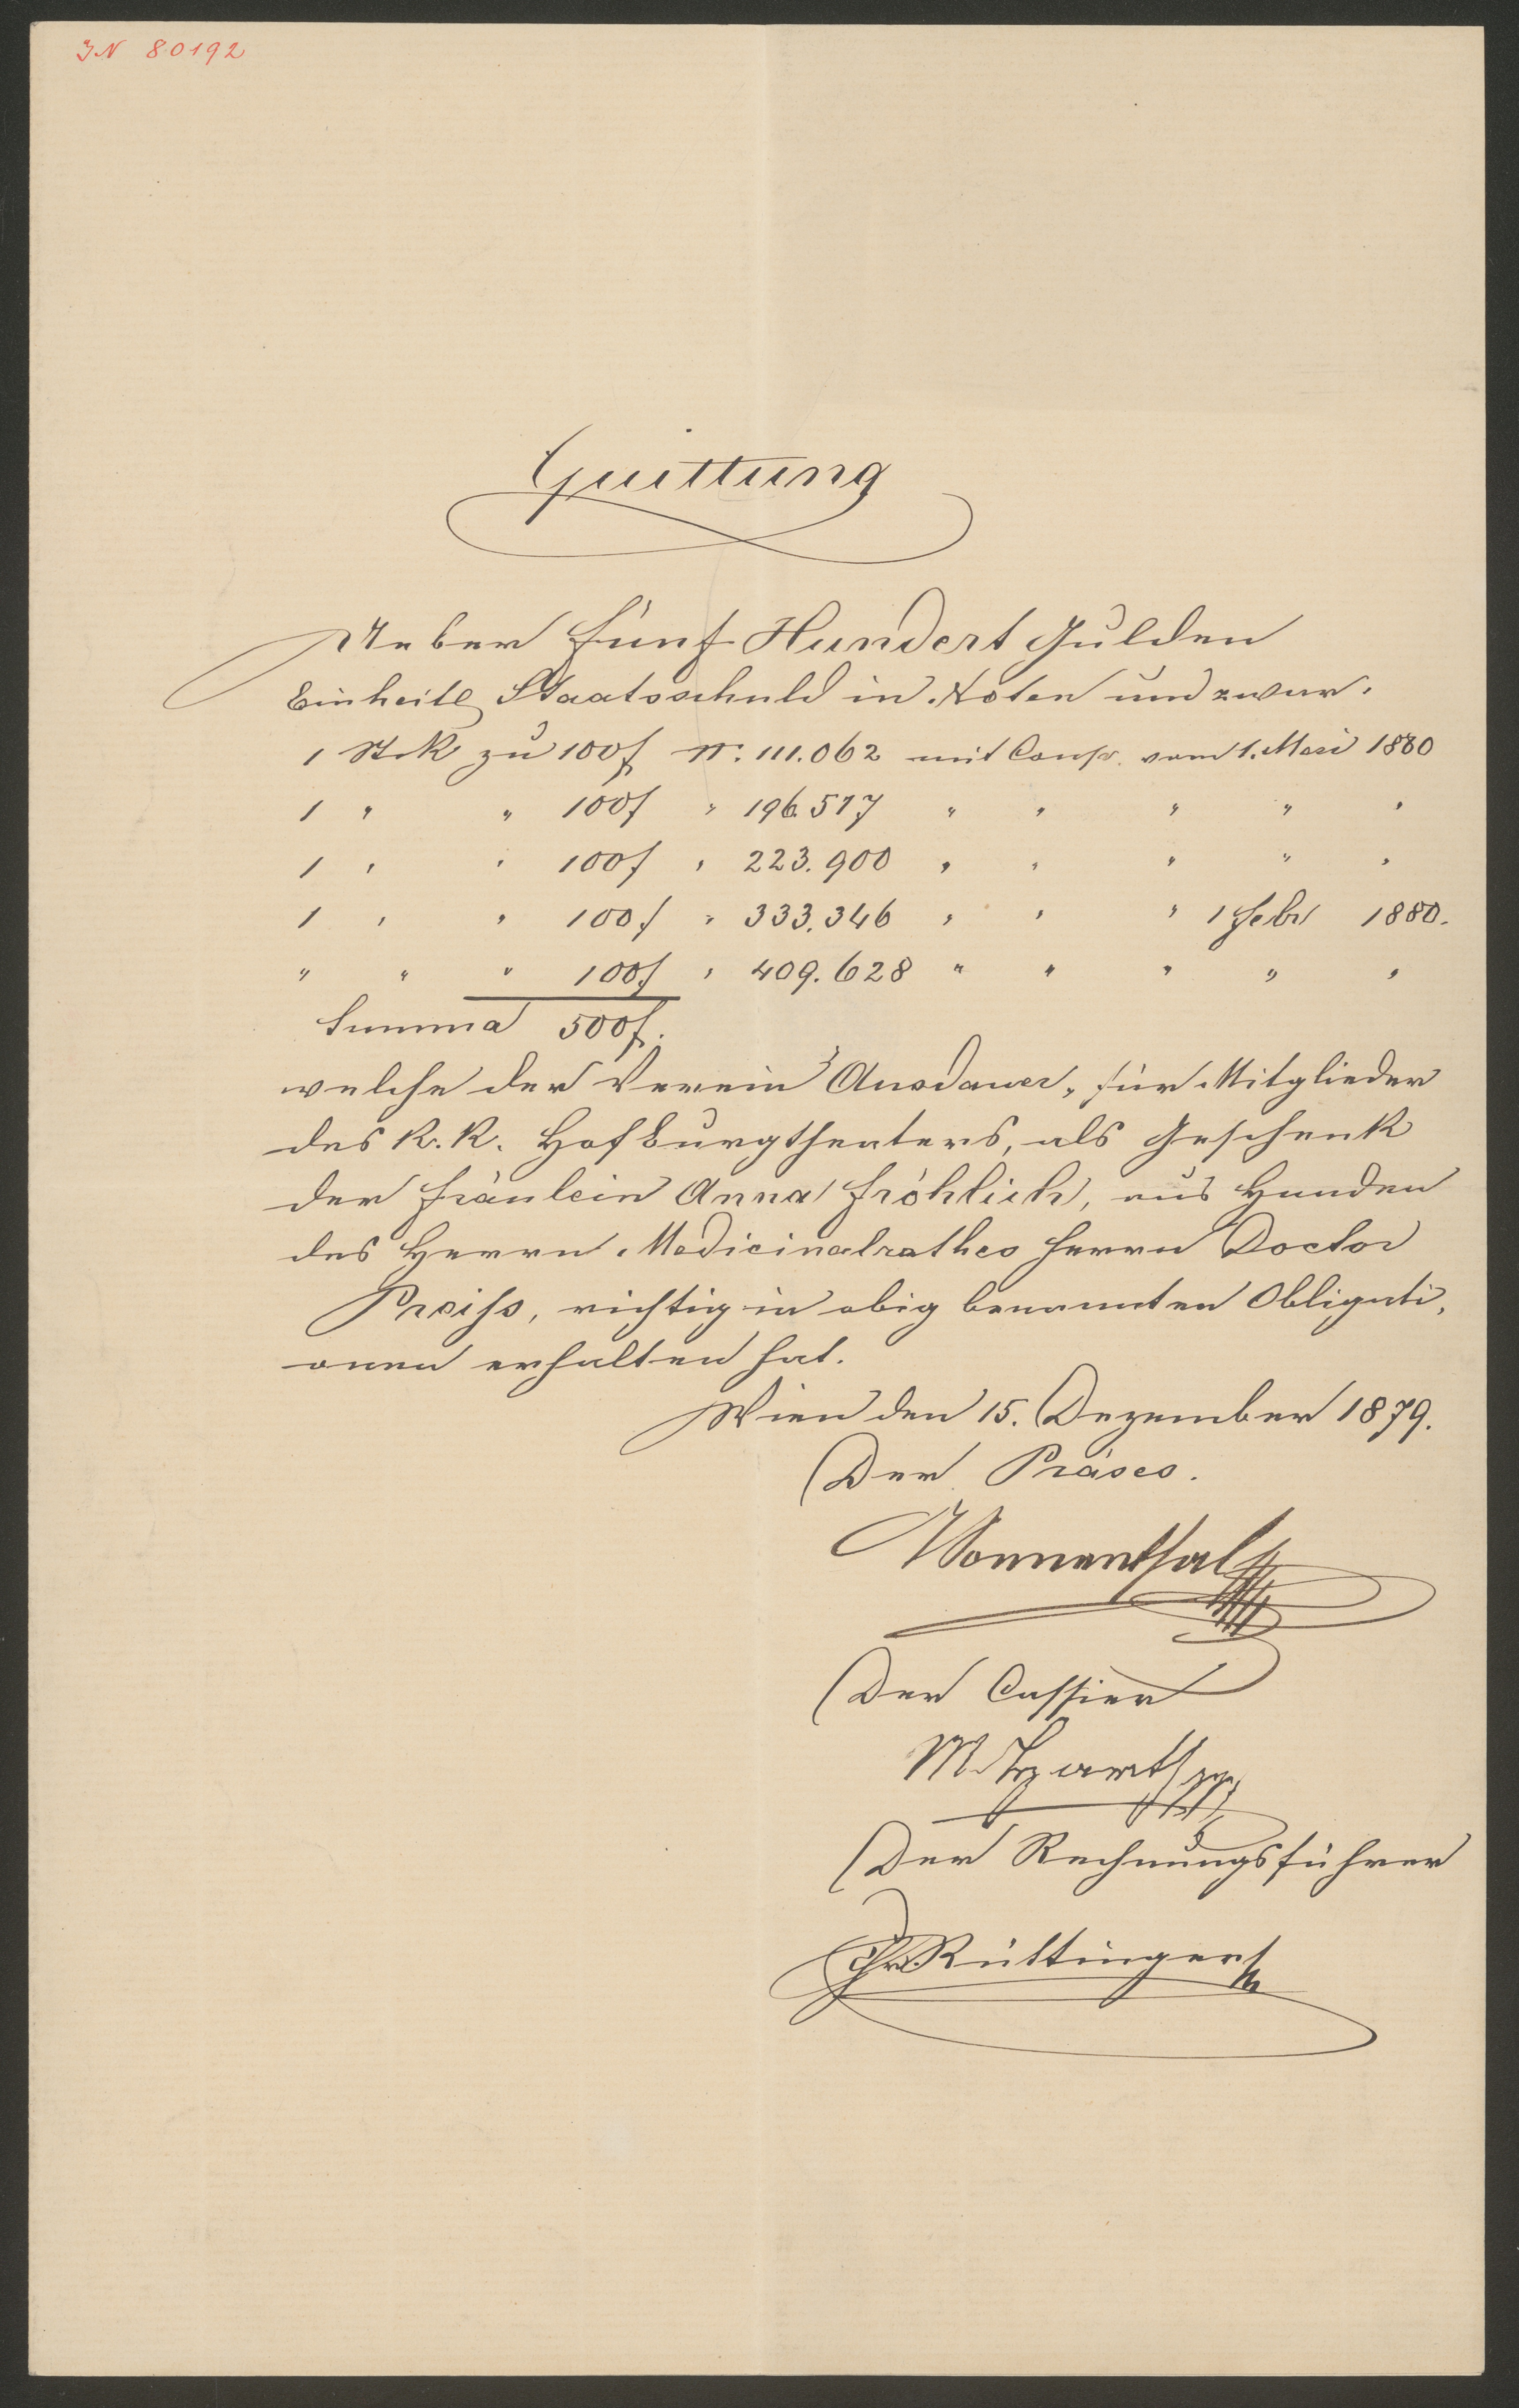 IN 80192
Quittung
Ueber fünf Hundert Gulden
Einheitl Staatsschuld in Noten und zwar.
1 Stck zu 100f N. 111.062 mit Coup. vom 1. Mai 1880
1 " " 100f " 196.517 " " " " "
1 " " 100f " 223.900 " " " " "
1 " " 100f " 333.346 " " " 1 Febr 1880.
" " " 100f " 409.628 " " " " "
Summa 500f.
welche der Verein "Ausdauer" für Mitglieder
des k. k. Hofburgtheaters, als Geschenk
der Fräulein Anna Fröhlich, aus Handen
des Herrn Medicinalrathes Herrn Doctor
Preiss, richtig in obig benannten Obligati-
onen erhalten hat.
Wien den 15. Dezember 1879.
Der Präses.
Sonnenthal
Der Cassier
Der Rechnungsführer
Rüttinger